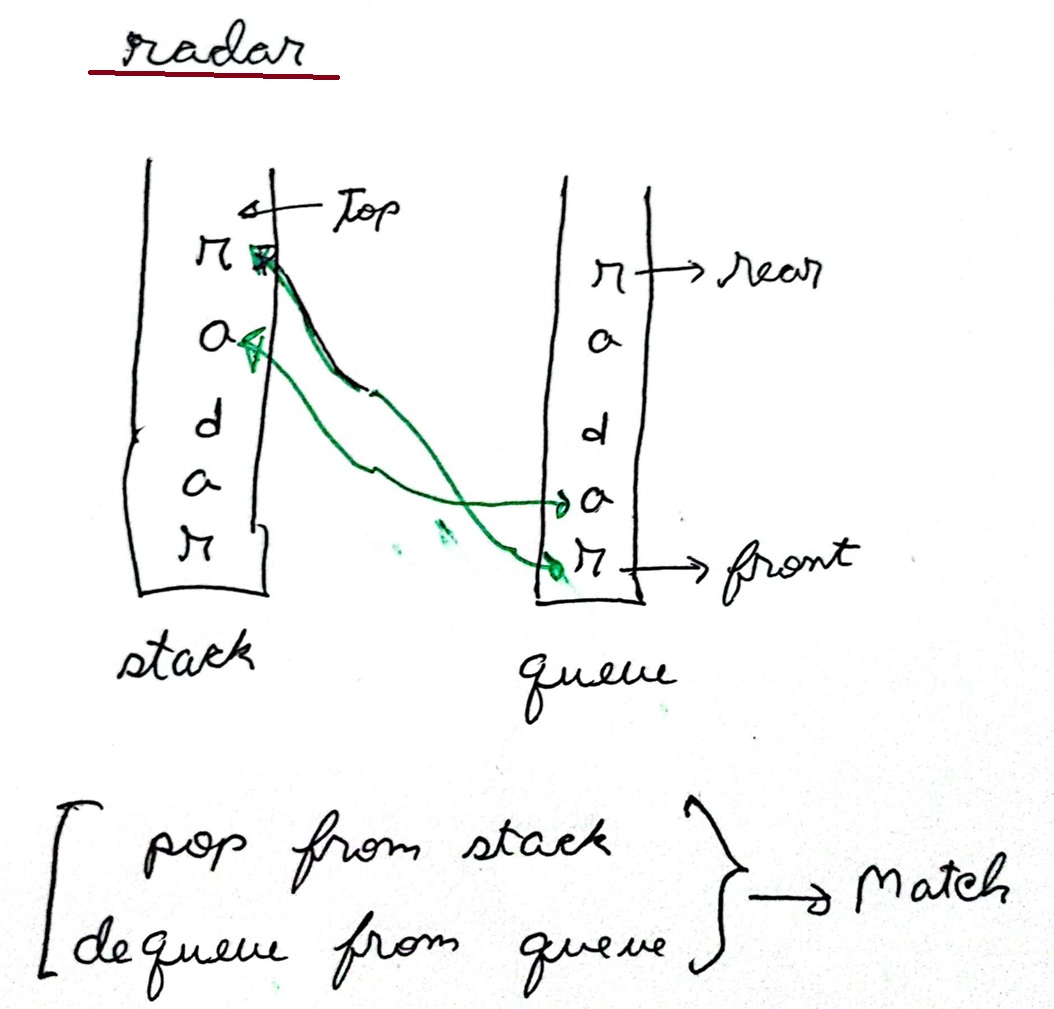 radar
Top
r
r → rear
a
a
d
d
a
a
r
r → front
stack
queue
pop from stack
dequeue from queue
→ Match